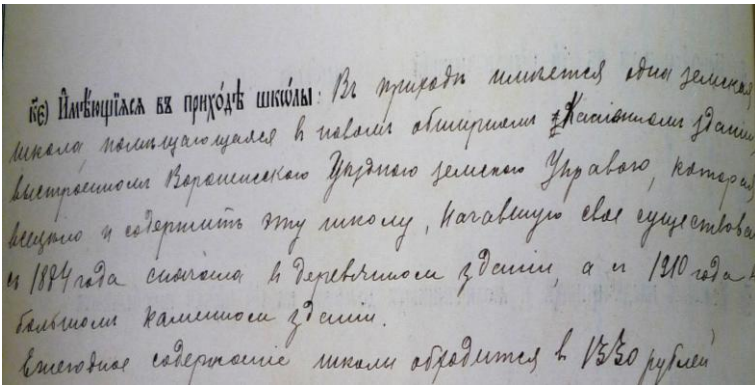 к҃є) Имѣющїяся въ прихо́дѣ шкѡ́лы: Въ приходѣ имѣется одна земская
школа, помѣщающаяся в новом обширном каменном здании,
выстроенном Воронежского Уѣздного земского Управого, которая
всецѣло и содержитъ эту школу, начавшую свое существова
съ 1884 года сначала в деревянном здании, а съ 1910 года в
большом каменном здании.
Ежегодное содержание школы обходится в 1330 рублей